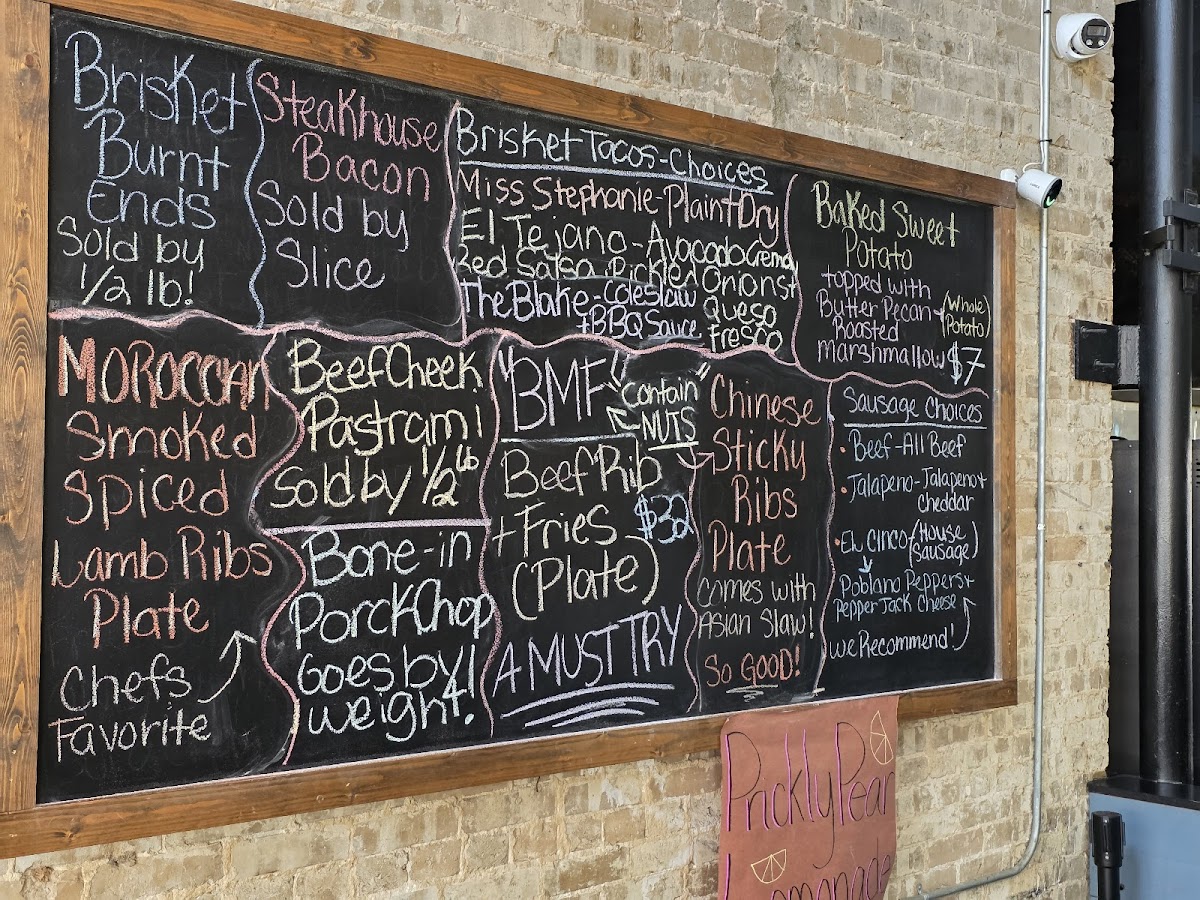 Brisket
Burnt
Ends
Sold by
1/2 lb!
Steakhouse
Bacon
Sold by
Slice
Brisket Tacos-Choices
Miss Stephanie-Plain+Dry
El Tejano-Avocado Crema
Red Salsa, Pickled Onions+
Queso
Fresco
The Blake-Coleslaw
+BBQ Sauce
Baked Sweet
Potato
topped with
Butter Pecan+
Roasted
Marshmallow
(Whole
Potato)
$7
Moroccan
Smoked
Spiced
Lamb Ribs
Plate
Chefs
Favorite
Beef Cheek
Pastrami
Sold by 1/2 lb
Bone-in
Porck Chop
Goes by
weight!
"BMF"
Contain
NUTS
Beef Rib
+ Fries
(Plate)
$32
A MUST TRY
Chinese
Sticky
Ribs
Plate
Comes with
Asian Slaw!
So GOOD!
Sausage Choices
• Beef-All Beef
• Jalapeno-Jalapeno+
Cheddar
• El Cinco-(House
Sausage)
Poblano Peppers+
Pepper Jack Cheese
we Recommend!
Prickly Pear
Lemonade